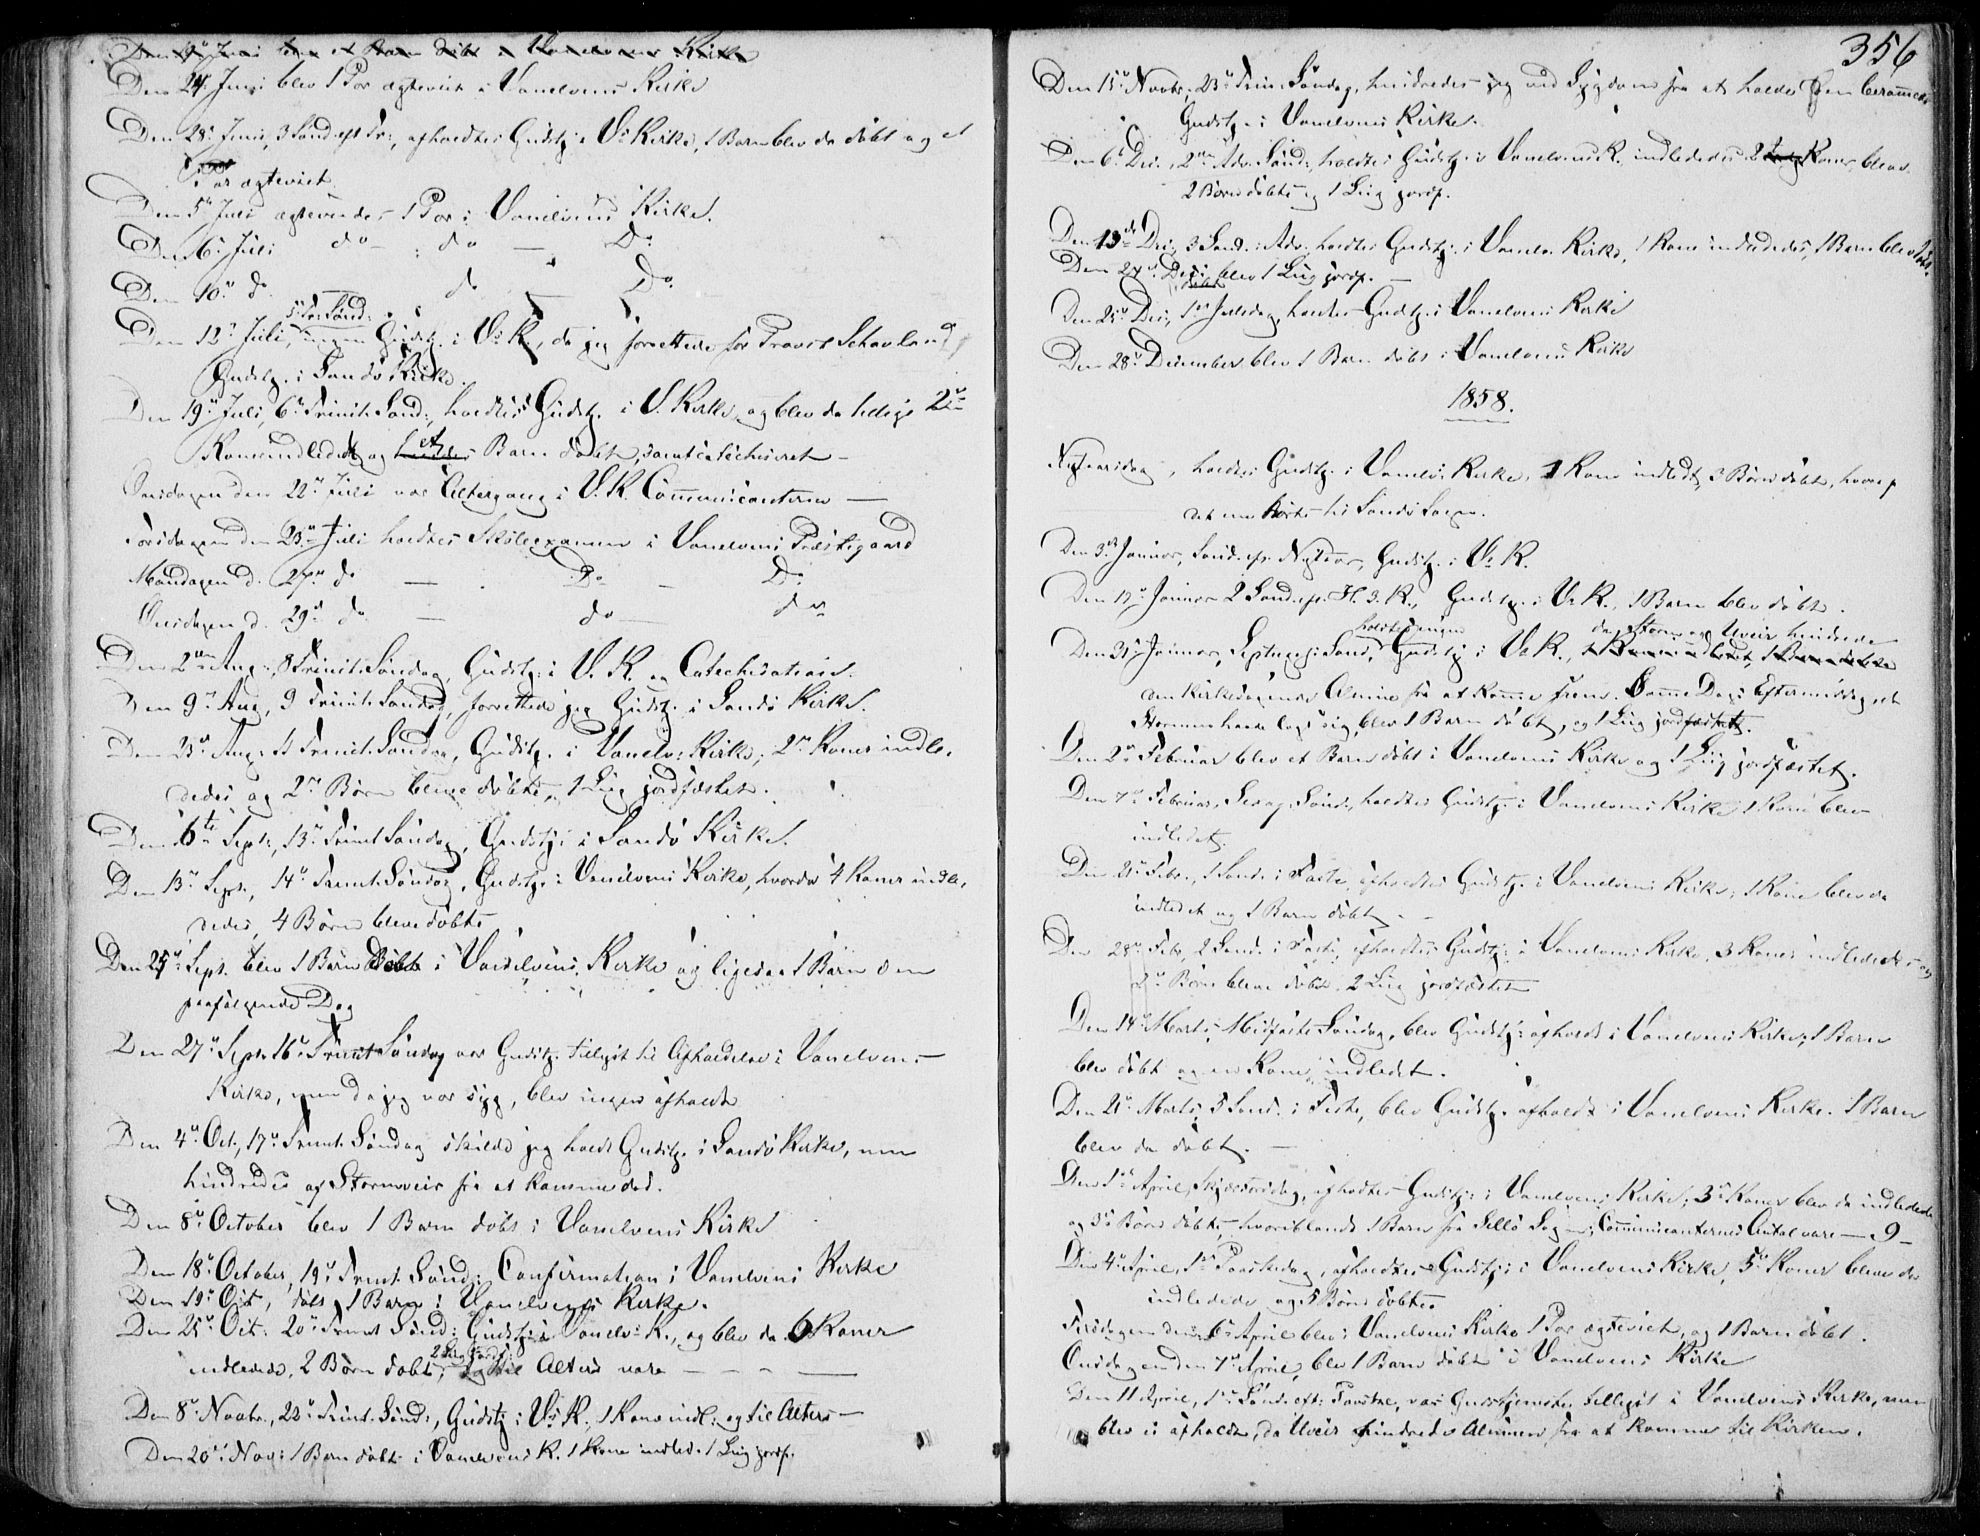 Den 24. Juni blev 1 Par ægteviet i Vanelvens Kirke
Den 28. Juni, 3 Sønd. eft. Tr:, afholdtes Gudstj. i V. Kirke, 1 Barn blev da døbt og et
Par ægteviet.
Den 5. Juli ægteviedes 1 Par i Vanelvens Kirke.
Den 6. Juli do – do – Do
Den 10. do do Do
5 Tr. Sønd:
Den 12. Juli, ingen Gudstj. i V. K., da jeg forrettede for Provst Schavland
Gudstj. i Sandø Kirke.
Den 19. Juli, 6. Trinit. Sønd:, holdtes Gudstj. i V. Kirke og blev da tillige 2
Koner indledede og et Barn døbt, samt catechiseret –
Onsdagen den 22. Juli var Altergang i V. K. Communicanterne –
Torsdagen den 23. Juli holdtes Skoleexamen i Vanelvens Præstegaard
Mandagen d. 27. do – Do – Do
Onsdagen d. 29. do – do – do
Den 2. Aug:, 8 Trinit. Søndag, Gudstj. i V. K. og Catechisation.
Den 9. Aug, 9 Trinit. Søndag, forrettede jeg Gudstj. i Sandø Kirke.
Den 23. Aug: 11 Trinit. Søndag, Gudstj. i Vanelv. Kirke, 2 Koner indle-
dedes og 2 Børn bleve døbte, 1 Liig jordfæstet.
Den 6te Sept., 13. Trinit Søndag, Gudstj. i Sandø Kirke.
Den 13. Sept., 14. Trinit. Søndag, Gudstj. i Vanelvens Kirke, hvorda 4 Koner indle-
dedes, 4 Børn bleve døbte
Den 25. Sept. blev 1 Barn døbt i Vanelvens Kirke og ligesaa 1 Barn den
paafølgende Dag
Den 27. Sept. 16. Trinit Søndag var Gudstj. tillyst til Afholdelse i Vanelvens
Kirke, men da jeg var syg, blev ingen afholdt
Den 4. Oct., 17. Trinit. Søndag skulde jeg holdt Gudstj. i Sandø Kirke, men
hindredes af Stormveir fra at komme did.
Den 8. October blev 1 Barn døbt i Vanelvens Kirke
Den 18. October, 19. Trinit. Sønd: Confirmation i Vanelvens Kirke
Den 19. Oct, døbt 1 Barn i Vanelvens Kirke.
Den 25. Oct. 20. Trinit Sønd: Gudstj. i Vanelv. K., og blev da 6 Koner
2 Liig jordf.
indledede, 2 Børn døbt, til Alters vare – – –
Den 8. Novbr., 22. Trinit. Sønd:, Gudstj. i V. K. 1 Kone indl: og til Alters –
Den 20. Nov: 1 Barn døbt i Vanelvens K. 1 Kone indled. 1 Liig jordf.
356
Den 15. Novbr., 23. Trin. Søndag, hindredes jeg ved Sygdom fra at holde den berammede
Gudstj. i Vanelvens Kirke.
Den 6. Dec., 2. Adv. Sønd:, holdtes Gudstj. i Vanelvens K. indlededes 2 Koner, bleve
2 Børn døbte og 1 Liig jordf.
Den 13de Dec., 3 Sønd. i Adv. holdtes Gudstj. i Vanelv. Kirke, 1 Kone indlededes, 1 Barn blev døbt.
Den 24. Dec: blev 1 Liig jordf. –
Den 25. Dec., 1. Juledag, holdtes Gudstj. i Vanelvens Kirke
Den 28. December blev 1 Barn døbt i Vanelvens Kirke
1858.
Nytaarsdag, holdtes Gudstj. i Vanelvs Kirke, 1 Kone indledt, 3 Børn døbte, hvoraf
det ene hørte til Sandø Sogn.
Den 3. Januar, Sønd. ef. Nytaar, Gudstj. i V. K.
Den 17. Januar 2 Sønd. ef. H. 3. K., Gudstj. i V. K., 1 Barn blev døbt.
holdtes ingen da Storm og Uveir hindrede
Den 31. Januar, Septuages: Sønd, Gudstj i V. K.,
den kirkesøgende Almue fra at komme frem. Samme Dags Eftermiddag, da
Stormen havde lagt sig, blev 1 Barn døbt, og 1 Liig jordfæstet.
Den 2. Februar blev et Barn døbt i Vanelvens Kirke og 1 Liig jordfæstet.
Den 7. Februar, Sexag. Sønd., holdtes Gudstj. i Vanelvens Kirke, 1 Kone blev
indledet.
Den 21. Febr., 1 Sønd: i Faste, afholdtes Gudstj. i Vanelvens Kirke; 1 Kone blev da
indledet og 1 Barn døbt. –
Den 28. Febr, 2 Sønd. i Faste, afholdtes Gudstj. i Vanelvens Kirke, 3 Koner indledede og
2 Børn bleve døbte. 2 Liig jordfæstet
Den 14. Marts, Midfaste Søndag, blev Gudstj. afholdt i Vanelvens Kirke; 1 Barn
blev døbt og en Kone indledet.
Den 21. Marts, 5 Sønd. i Faste, blev Gudstj. afholdt i Vanelvens Kirke. 1 Barn
blev da døbt. –
Den 1. April, Skjærtorsdag, afholdtes Gudstj. i Vanelvens Kirke; 3 Koner blev da indledede
og 3 Børn døbte, hvoriblandt 1 Barn fra Selø Sogn; Communicanternes Antal vare – 9 –
Den 4. April, 1. Paaskedag, afholdtes Gudstj. i Vanelvens Kirke, 5 Koner bleve da
indledede og 5 Børn døbte.
Tirsdagen den 6. April blev i Vanelvens Kirke 1 Par ægteviet, og 1 Barn døbt.
Onsdagen den 7. April, blev 1 Barn døbt i Vanelvens Kirke
Den 11 April, 1. Sønd. eft. Paaske, var Gudstjeneste tillyst i Vanelvens Kirke, men
blev ei afholdt, da Uveir hindrede Almuen fra at komme til Kirken.